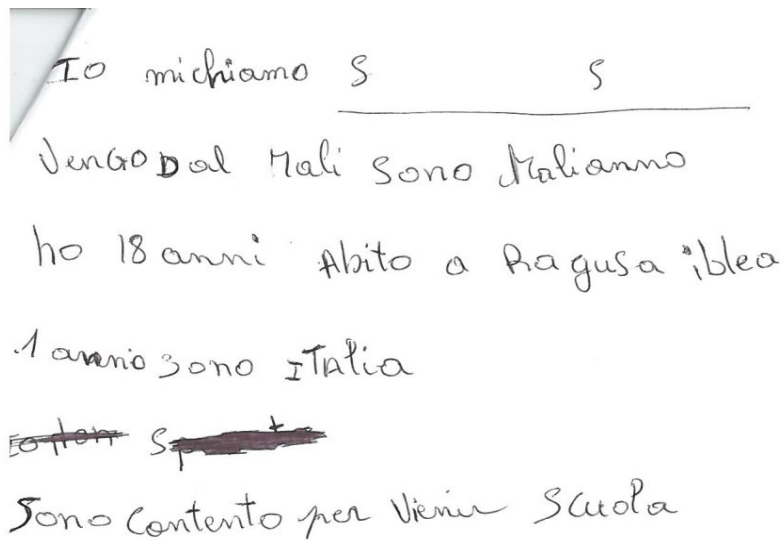 Io michiamo S S
VenGo Dal Mali Sono Malianno
ho 18 anni Abito a Ragusa iblea
1 anno sono ITAlia
Sono Contento per Vienir Scuola